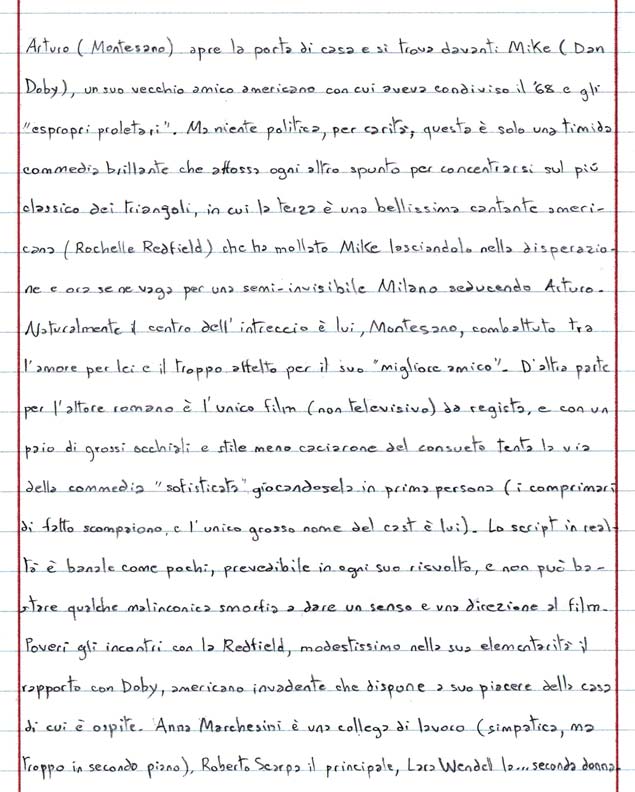 Arturo (Montesano) apre la porta di casa e si trova davanti Mike (Dan
Doby), un suo vecchio amico americano con cui aveva condiviso il '68 e gli
"espropri proletari". Ma niente politica, per carità, questa è solo una timida
commedia brillante che affossa ogni altro spunto per concentrarsi sul più
classico dei triangoli, in cui la terza è una bellissima cantante ameri-
cana (Rochelle Redfield) che ha mollato Mike lasciandolo nella disperazio-
ne e ora se ne vaga per una semi-invisibile Milano seducendo Arturo.
Naturalmente il centro dell'intreccio è lui, Montesano, combattuto tra
l'amore per lei e il troppo affetto per il suo "migliore amico". D'altra parte
per l'attore romano è l'unico film (non televisivo) da regista, e con un
paio di grossi occhiali e stile meno caciarone del consueto tenta la via
della commedia "sofisticata" giocandosela in prima persona (i comprimari
di fatto scompaiono, e l'unico grosso nome del cast è lui). Lo script in real-
tà è banale come pochi, prevedibile in ogni suo risvolto, e non può ba-
stare qualche malinconica smorfia a dare un senso e una direzione al film.
Poveri gli incontri con la Redfield, modestissimo nella sua elementarità il
rapporto con Doby, americano invadente che dispone a suo piacere della casa
di cui è ospite. Anna Marchesini è una collega di lavoro (simpatica, ma
troppo in secondo piano), Roberto Scarpa il principale, Lara Wendell la... seconda donna.